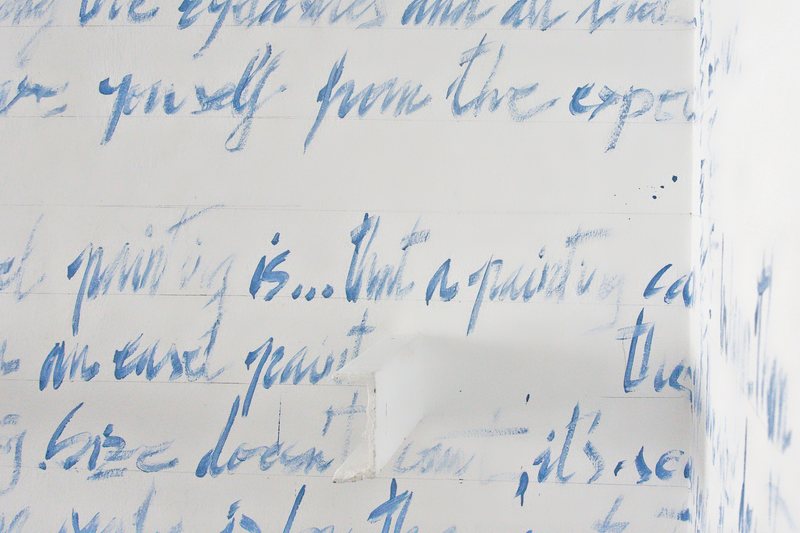 the eyelashes and all that
yourself from the expo
painting is... that a painting ca
an easel paint the
g. Size doesn't count, it's. sca
is by the